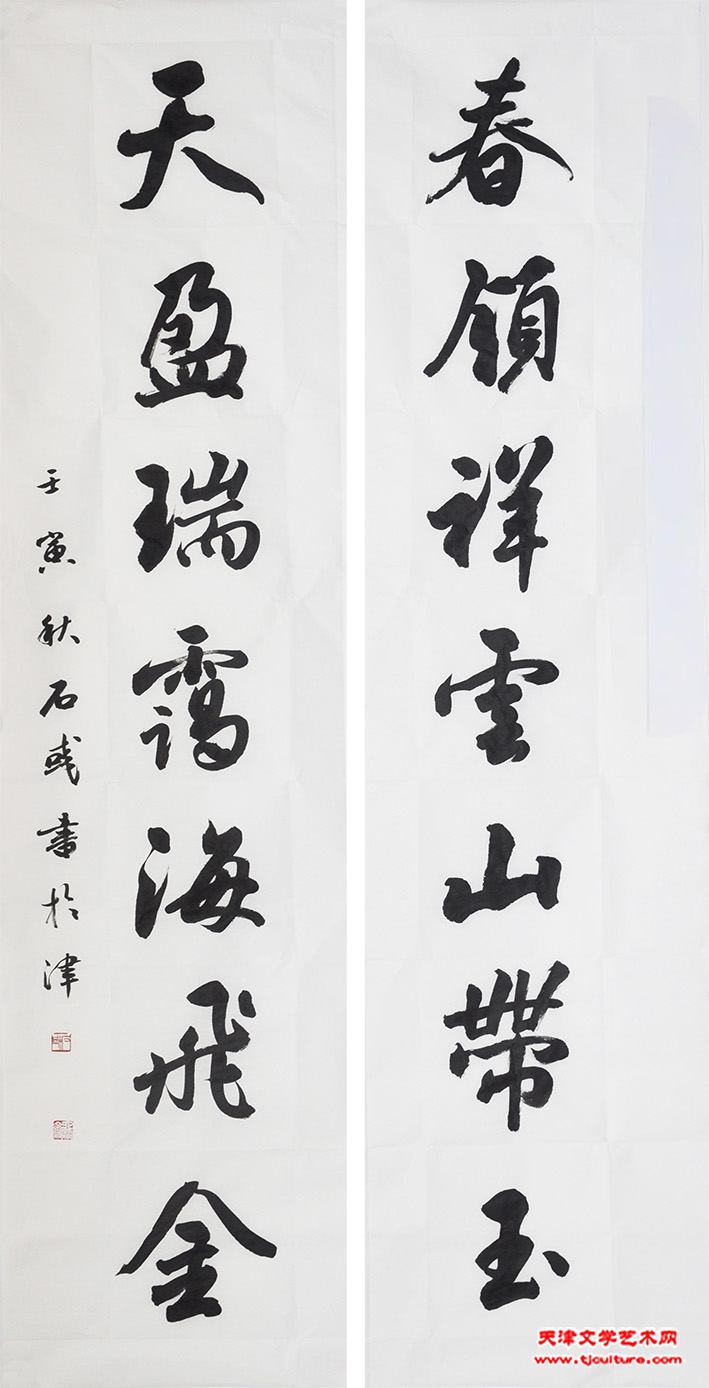 春領祥雲山帶玉
天盈瑞靄海飛金
壬寅秋石彧書於津
天津文学艺术网
www.tjculture.com